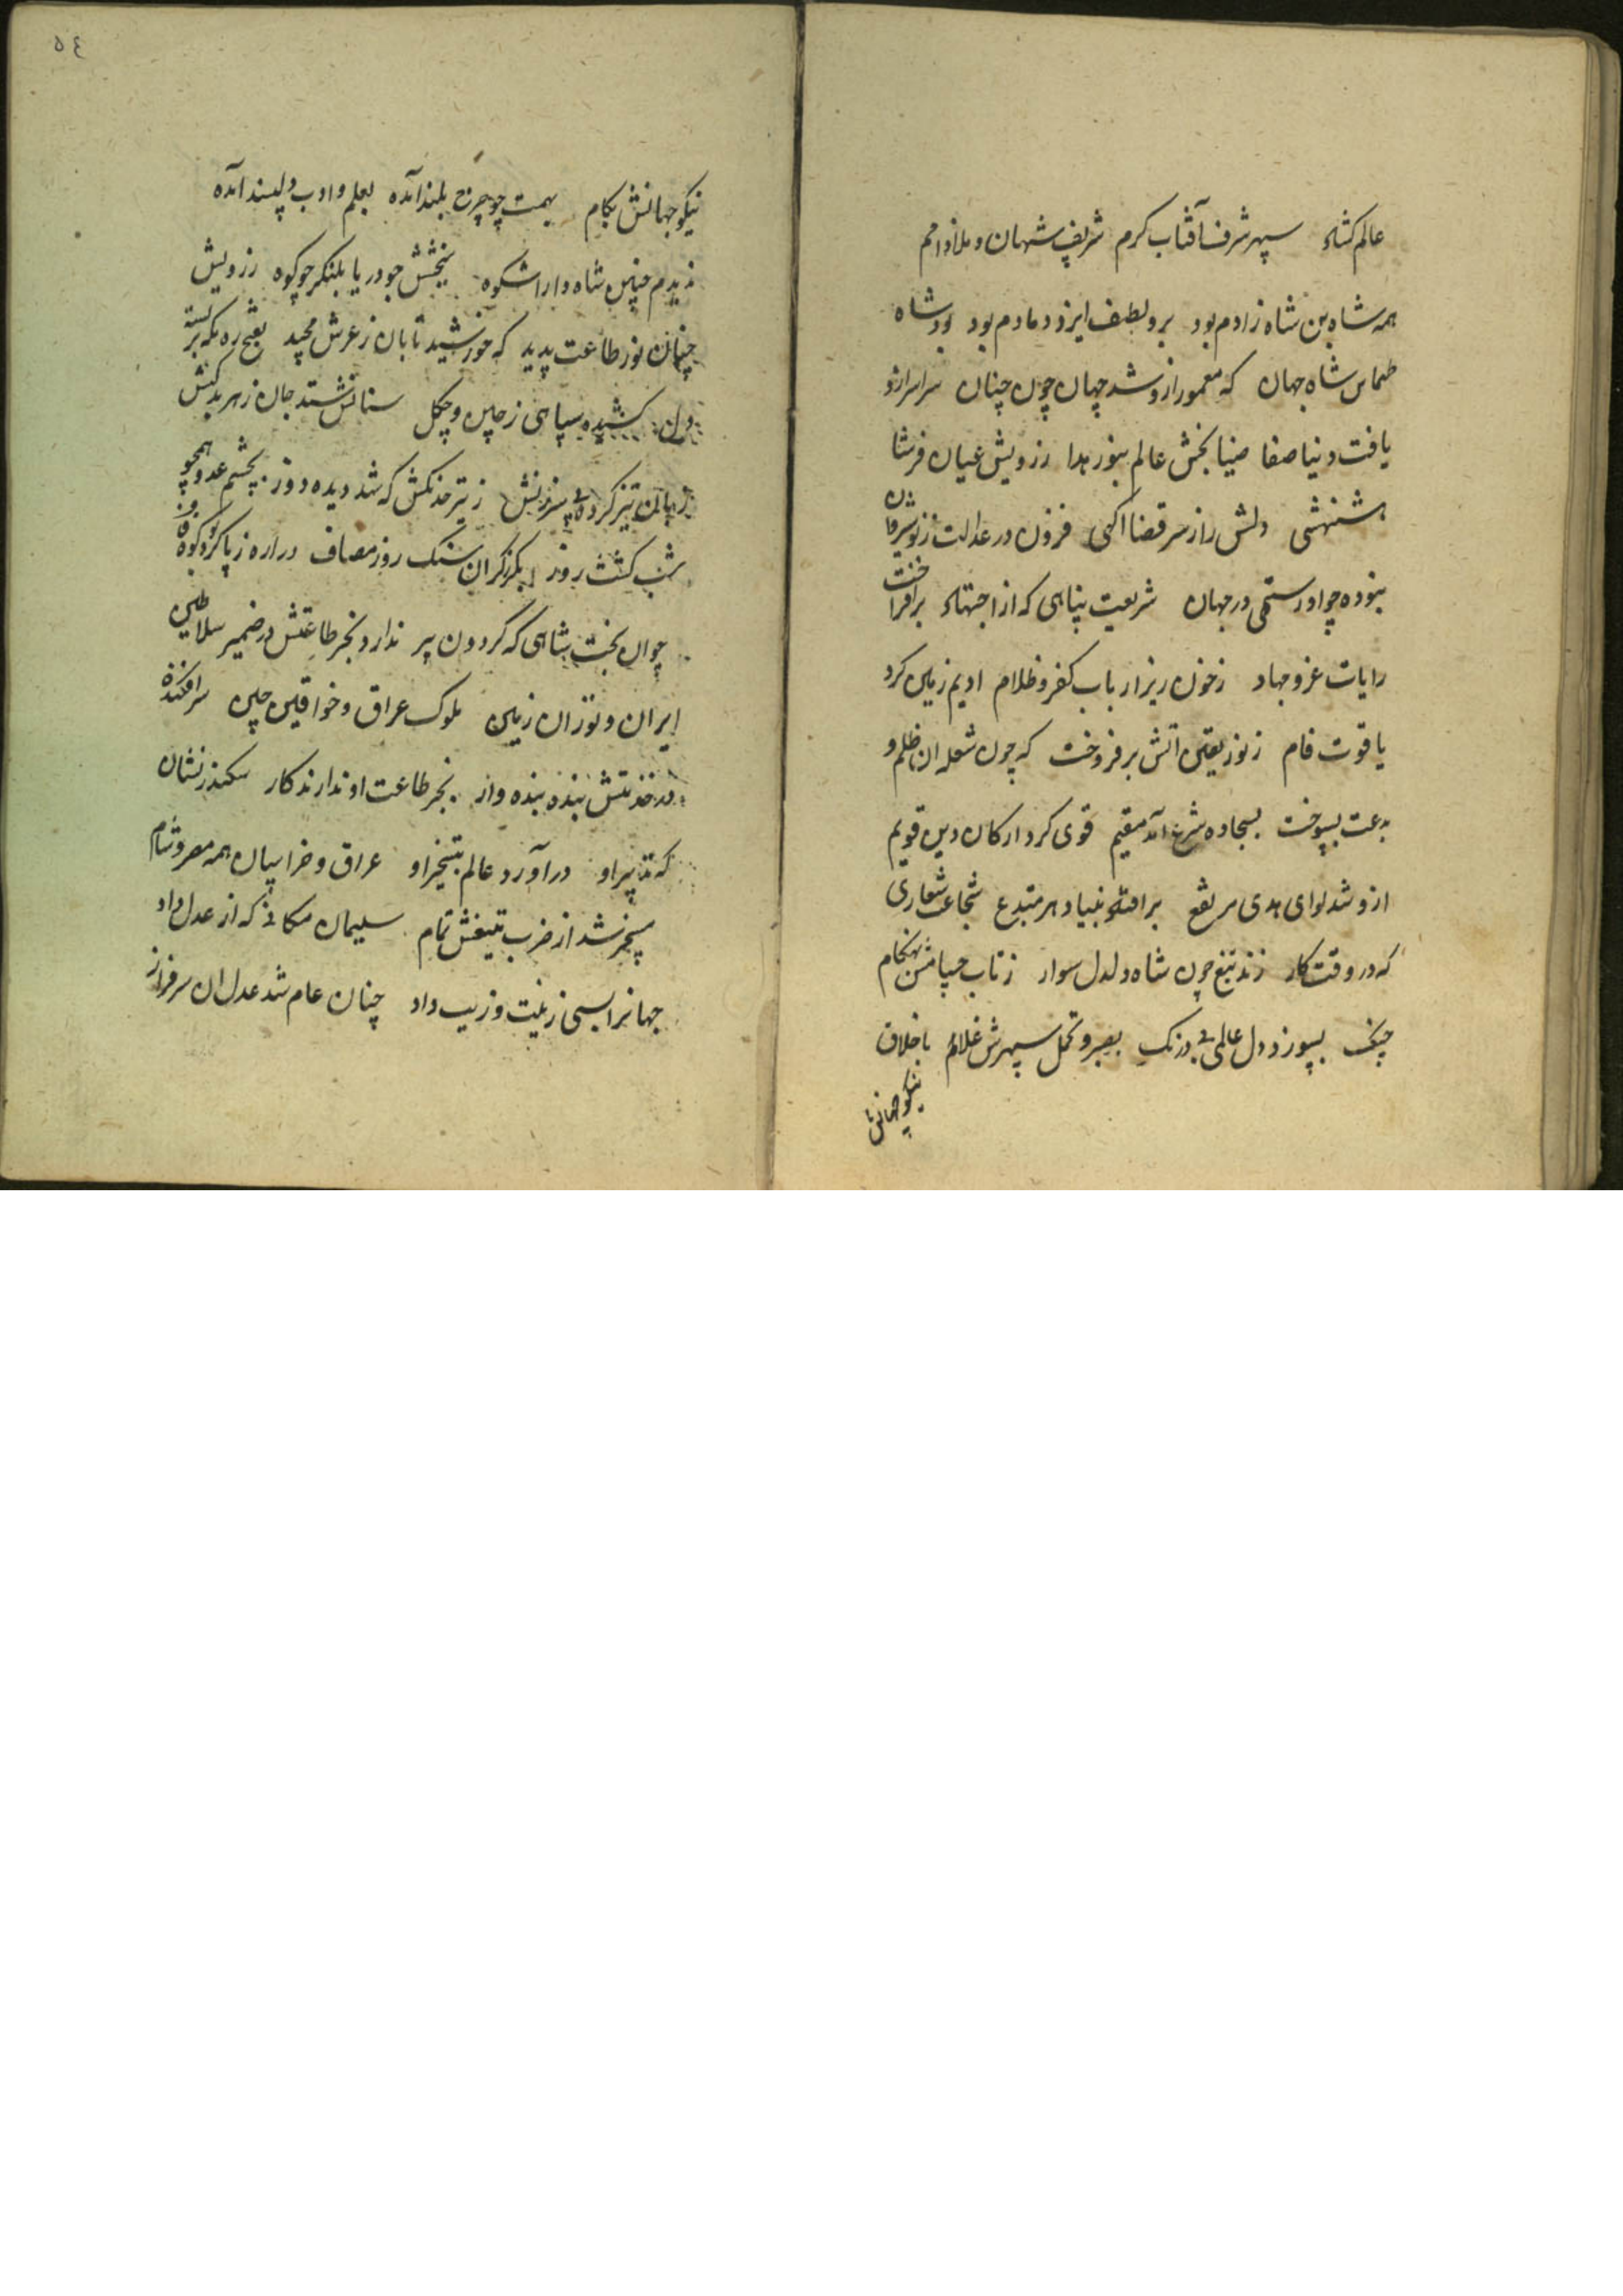 عالم کشاء سپهر شرف آفتاب کرم شریف شهان و ملاذ امم
همه شاه بن شاه زادم بود برو لطف ایزد دمادم بود بود شاه
طهماس شاه جهان که معمور ازو شد جهان چون چنان سراسر ازو
یافت دنیا صفا ضیا بخش عالم بنور هدا ز رویش عیان فر شا
هنشهی دلش راز سر قضا اکهی فزون در عدالت ز نوشیروان
نبوده چو او رستمی در جهان شریعت پناهی که از اجتهاد برافراخت
رایات غزو جهاد ز خون ریز ارباب کفر و ظلام ادیم زمین کرد
یاقوت فام ز نور یقین اتش برفروخت که چون شعله ان ظلم و
بدعت بسوخت بسجاده شرع آمد مقیم قوی کرد ارکان دین قویم
ازو شد لوای هدی مرتفع برافتاد بنیاد هر مبتدع شجاعت شعاری
که در وقت کار زند تیغ چون شاه دلدل سوار ز تاب حسامش بهنکام
جنک بسوزد دل عالمی بی درنک بصبر و تحمل سپهرش غلام باخلاق
نیکو جهانش
٥٤
نیکو جهانش بکام بهمت چو چرخ بلند آمده بعلم و ادب دلپسند آمده
ندیدم چنین شاه دارا شکوه ببخشش چو دریا بلنکر چو کوه ز رویش
چنان نور طاعت پدید که خورشید تابان ز عرش مجید بفتح ره کمر بسته
کشیده سپاهی ز چین و چکل سنانش ستد جان ز هر بدکنش
زبان تیز کرده پی سرزنش ز تیر خدنکش که شد دیده دوز بچشم عدو همچو
شب کشت روز بکرز کران سنک روز مصاف دراره ز پا کرد کوه قاف
جوان بخت شاهی که کردون پیر ندارد بجز طاعتش در ضمیر سلاطین
ایران و توران زمین ملوک عراق و خواقین چین سرافکنده
در خدمتش بنده وار بجز طاعت او ندارند کار سکندر نشان
که تدبیر او درآورد عالم بتسخیر او عراق و خراسان همه مصر و شام
مسخر شد از ضرب تیغش تمام سلیمان مکانی که از عدل و داد
جهانرا بسی زینت و زیب داد چنان عام شد عدل ان سرفراز